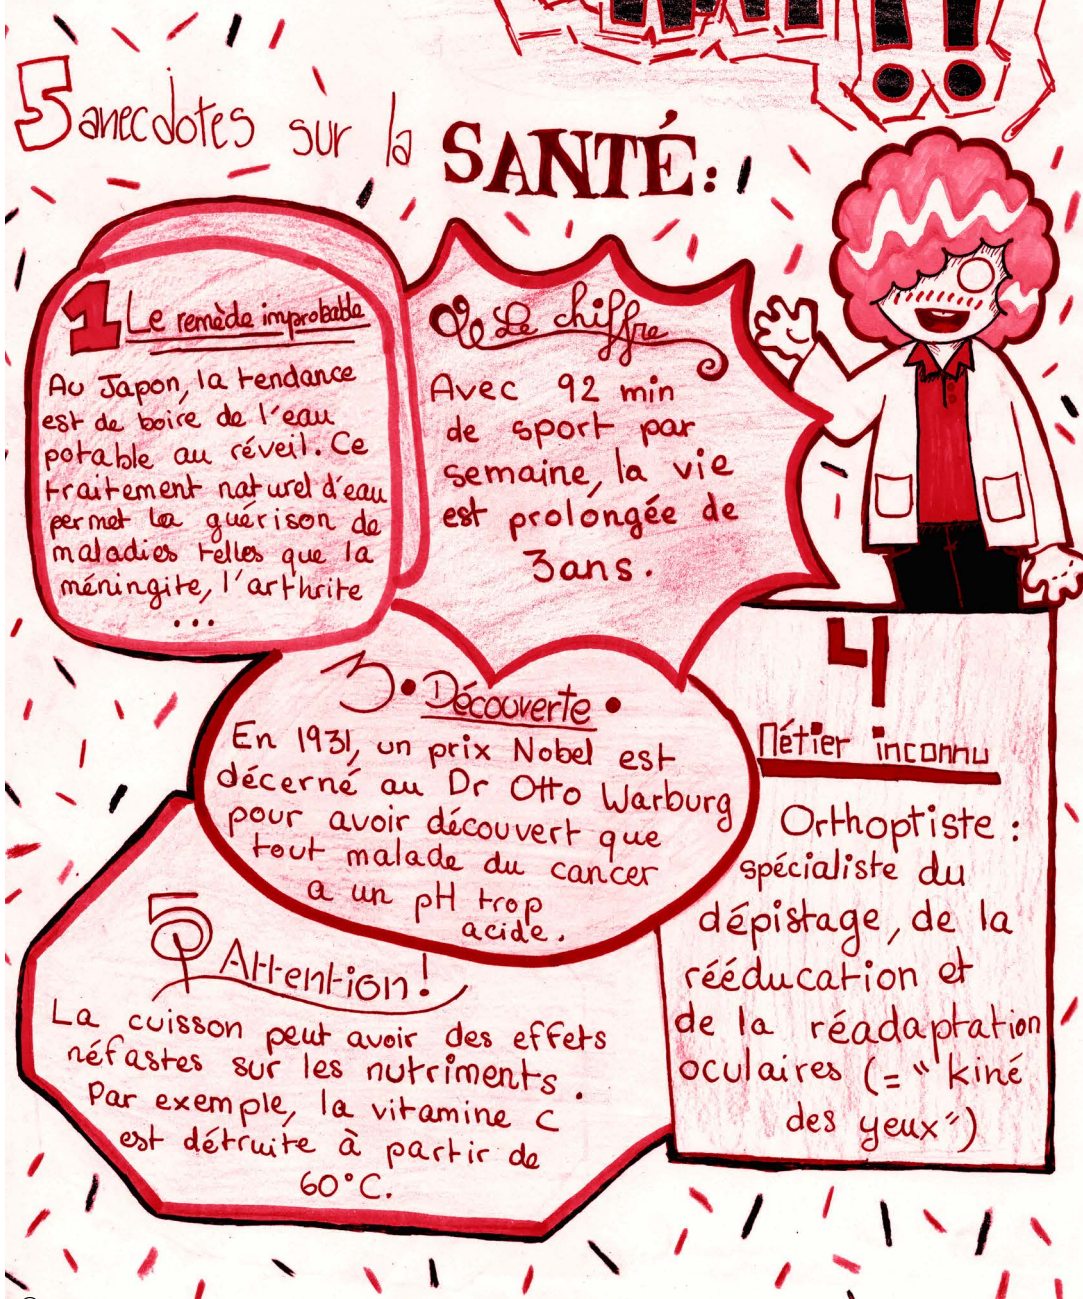 5 anecdotes sur la SANTÉ:
1 Le remède improbable
Au Japon, la tendance
est de boire de l'eau
potable au réveil. Ce
traitement naturel d'eau
permet la guérison de
maladies telles que la
méningite, l'arthrite
...
2. Le chiffre
Avec 92 min
de sport par
semaine, la vie
est prolongée de
3ans.
3. Découverte.
En 1931, un prix Nobel est
décerné au Dr Otto Warburg
pour avoir découvert que
tout malade du cancer
a un pH trop
acide.
4
Métier inconnu
Orthoptiste :
spécialiste du
dépistage, de la
rééducation et
de la réadaptation
oculaires (= "kiné
des yeux")
5 Attention!
La cuisson peut avoir des effets
néfastes sur les nutriments.
Par exemple, la vitamine C
est détruite à partir de
60°C.